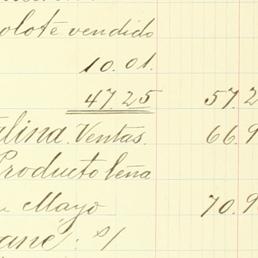 olote vendido
10.01.
47.25 57.2
alina. Ventas. 66.9
Producto leña
Mayo 70.9
ané. s/